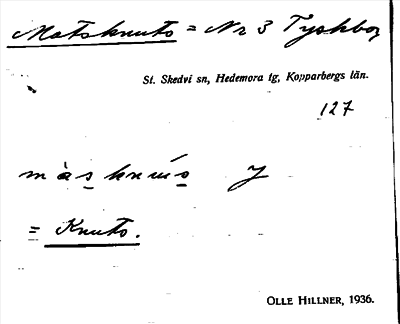 Matsknuts = Nr 3 Tyskbo
St. Skedvi sn, Hedemora tg, Kopparbergs län.
127
màs knu̇́s y
= Knuts.
OLLE HILLNER, 1936.